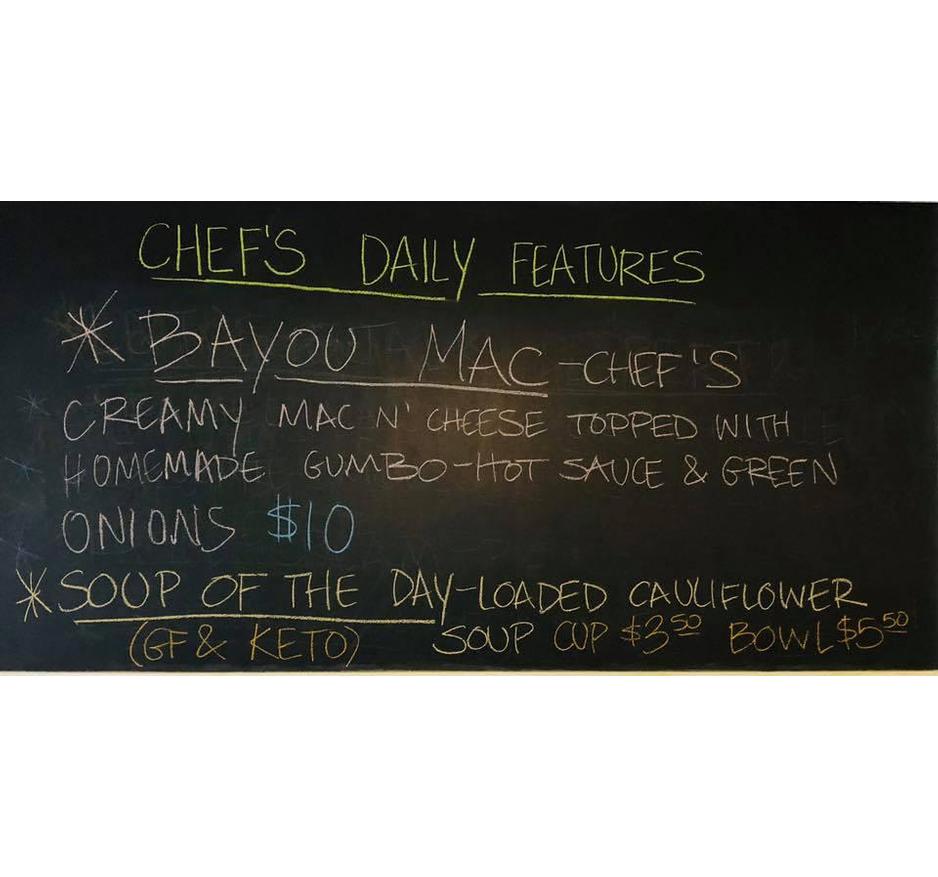 CHEF'S DAILY FEATURES
* BAYOU MAC - CHEF'S
CREAMY MAC N' CHEESE TOPPED WITH
HOMEMADE GUMBO - HOT SAUCE & GREEN
ONIONS $10
* SOUP OF THE DAY - LOADED CAULIFLOWER
(GF & KETO) SOUP CUP $3.50 BOWL $5.50